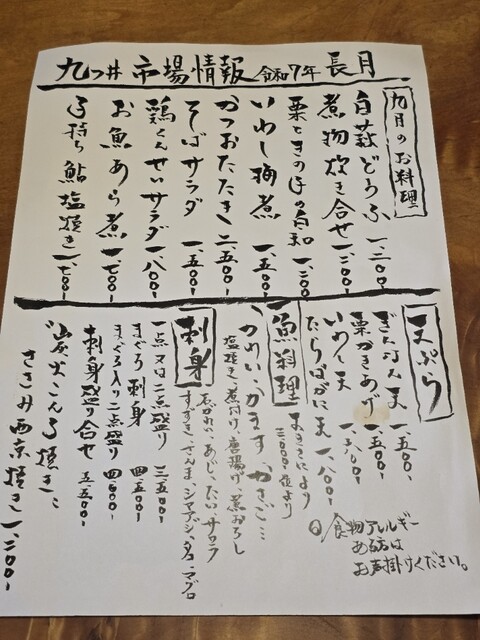 九つ井 市場情報 令和7年 長月
九月のお料理
白萩どうふ 一、二〇〇-
煮物炊き合せ 一、二〇〇-
栗ときのこの白和 一、二〇〇-
いわし梅煮 一、五〇〇-
かつおたたき 二、五〇〇-
そばサラダ 一、五〇〇-
鶏くんせいサラダ 一、八〇〇-
お魚あら煮 一、七〇〇-
子持ち鮎塩焼き 一、七〇〇-
天ぷら
ぎんなん天 一、五〇〇-
栗かきあげ 一、五〇〇-
いわし天 一、八〇〇-
たらばがに天 一、八〇〇-
魚料理
大きさにより
三〇〇〇-位より
かれい、かます、かさご…
塩焼き、煮付け、唐揚げ、煮おろし
刺身
石がれい、あじ、たい、サワラ
すずき、さんま、シマアジ、タコ、マグロ
一点又は二点盛り 三、五〇〇-
まぐろ刺身 四、五〇〇-
まぐろ入り二点盛り 四、〇〇〇-
刺身盛り合せ 五、五〇〇-
ささみ西京焼き 一、二〇〇-
食物アレルギー
ある方は
お声掛けください。